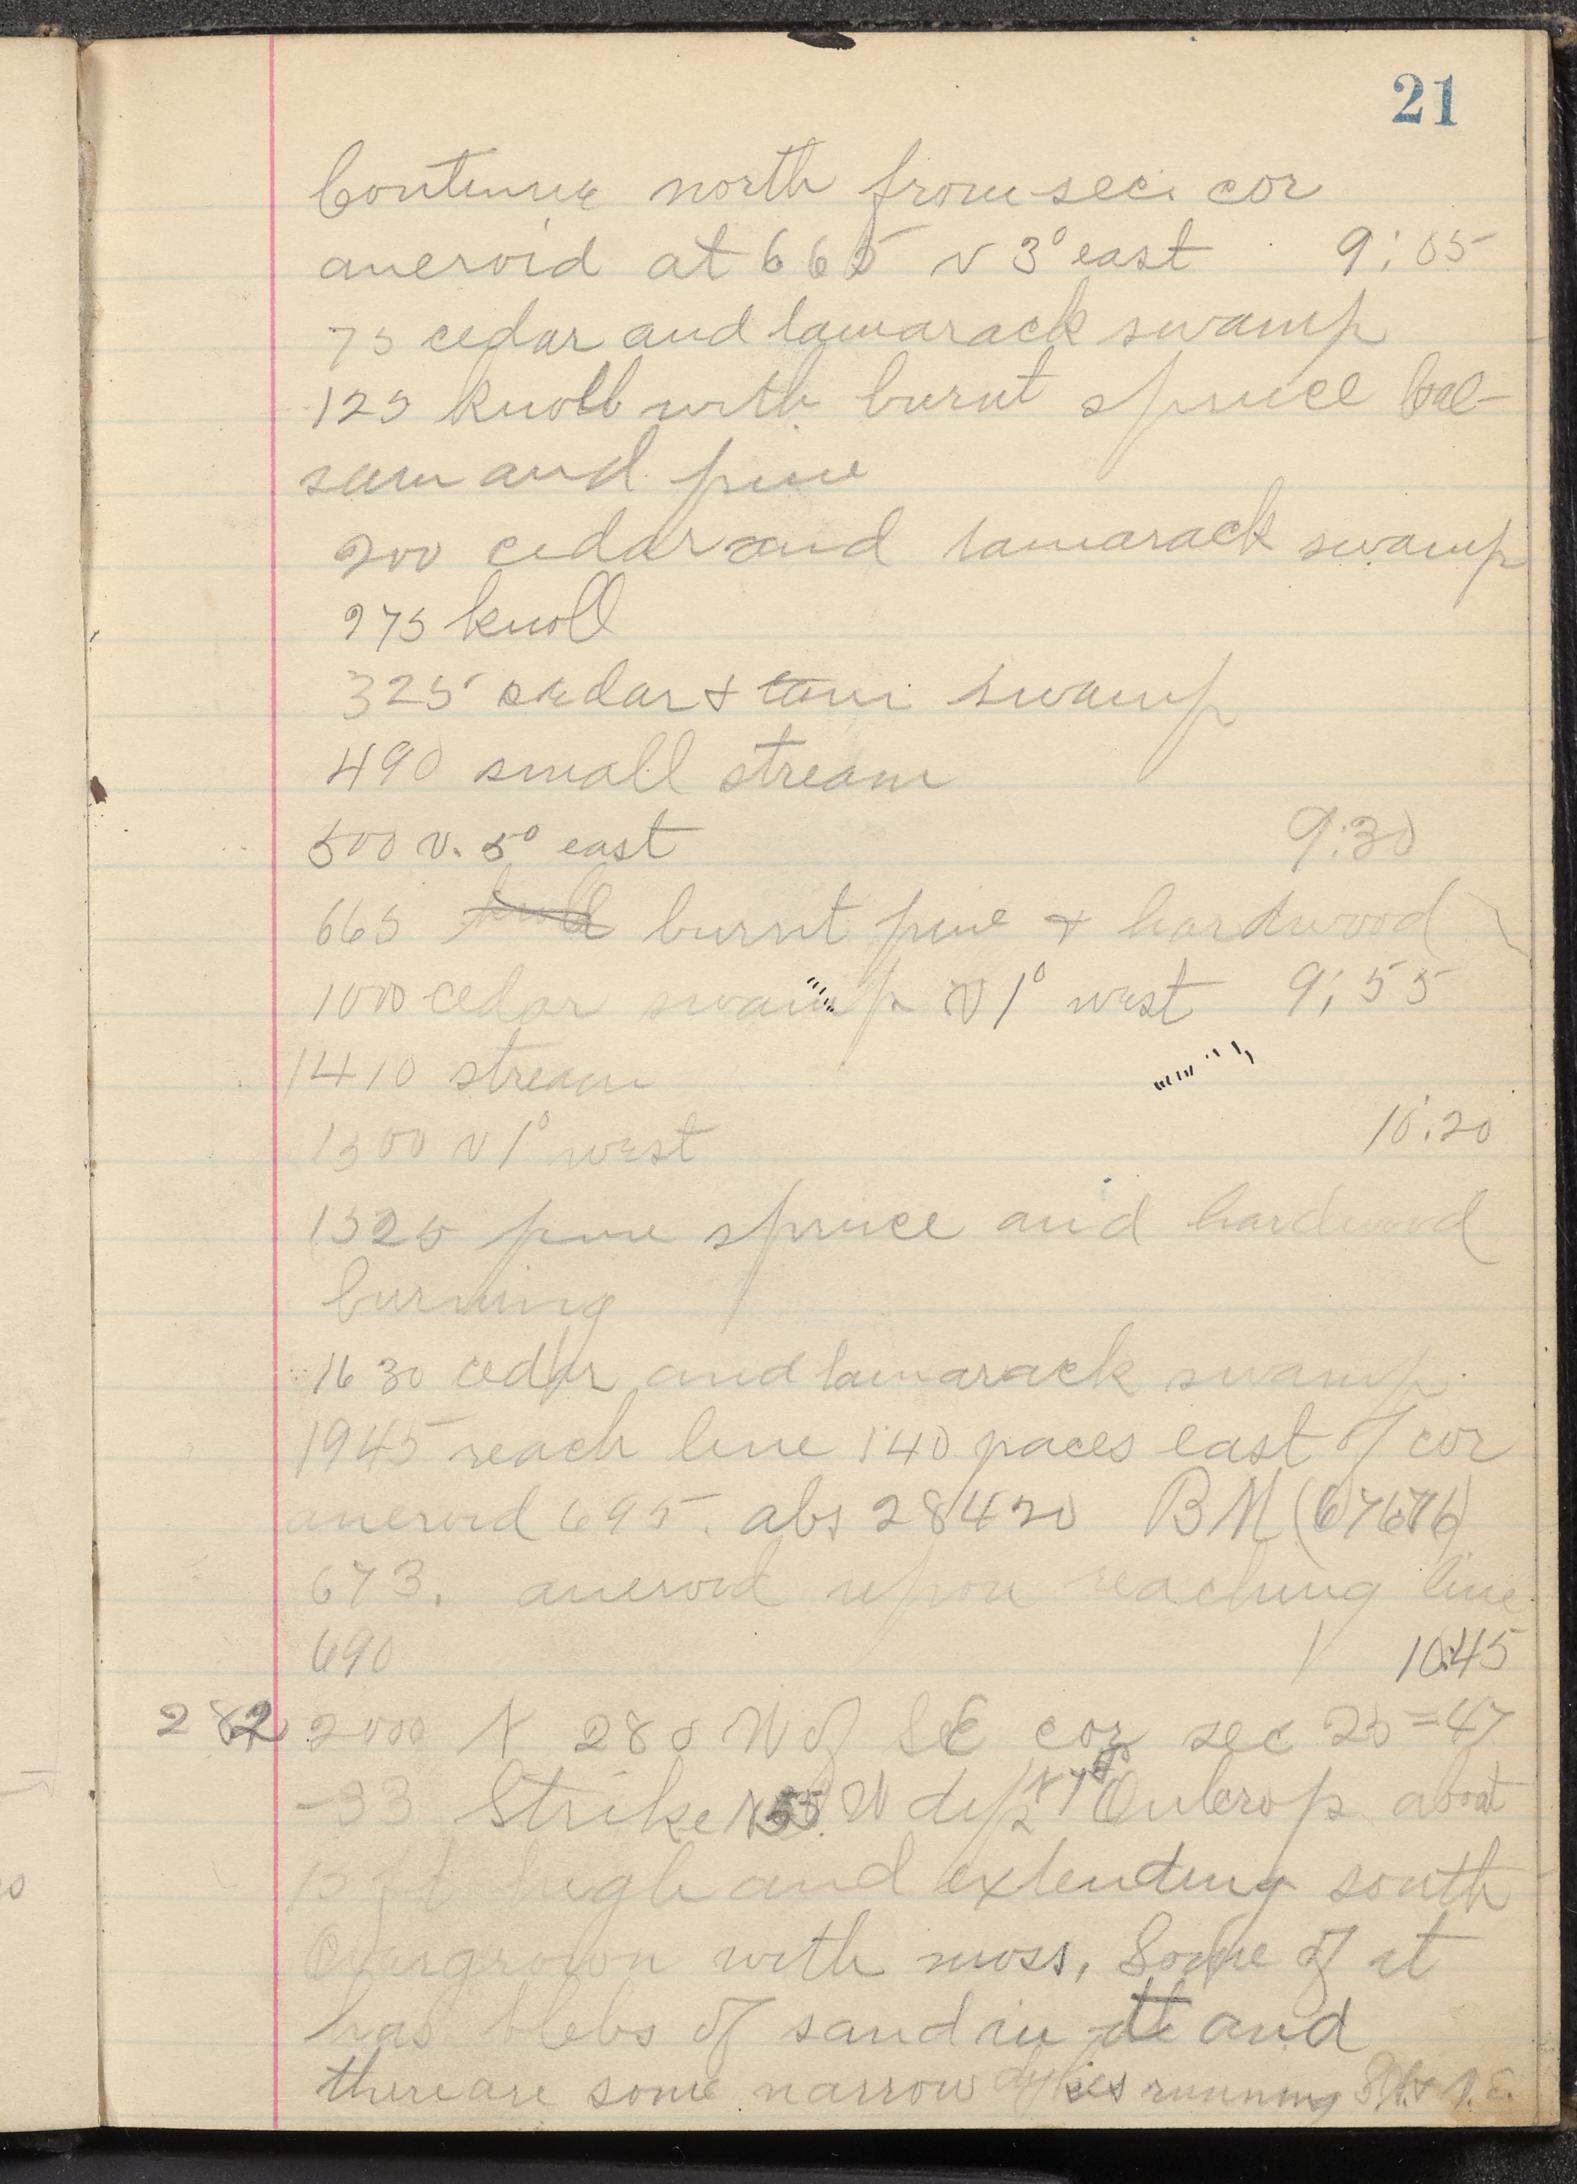 21
Continue north from sec. cor
aneroid at 665 v 3° east 9:05
75 cedar and tamarack swamp
125 knoll with burnt spruce bal-
sam and pine
200 cedar and tamarack swamp
275 knoll
325 cedar & tam swamp
490 small stream
500 v. 5° east 9:30
665 burnt pine & hardwood
1000 cedar swamp v 1° west 9:55
1410 stream
1500 v 1° west 10:20
1525 pine spruce and hardwood
burning
1630 cedar and tamarack swamp
1945 reach line 140 paces east of cor
aneroid 695. abs 28420 BM
673. aneroid upon reaching line
690 10:45
282 2000 N 280 W of SE cor sec 25=47
-33 Strike N55 W dip Outcrop about
15 ft high and extending south
Overgrown with moss, Some of it
has blebs of sand in it and
there are some narrow dykes running